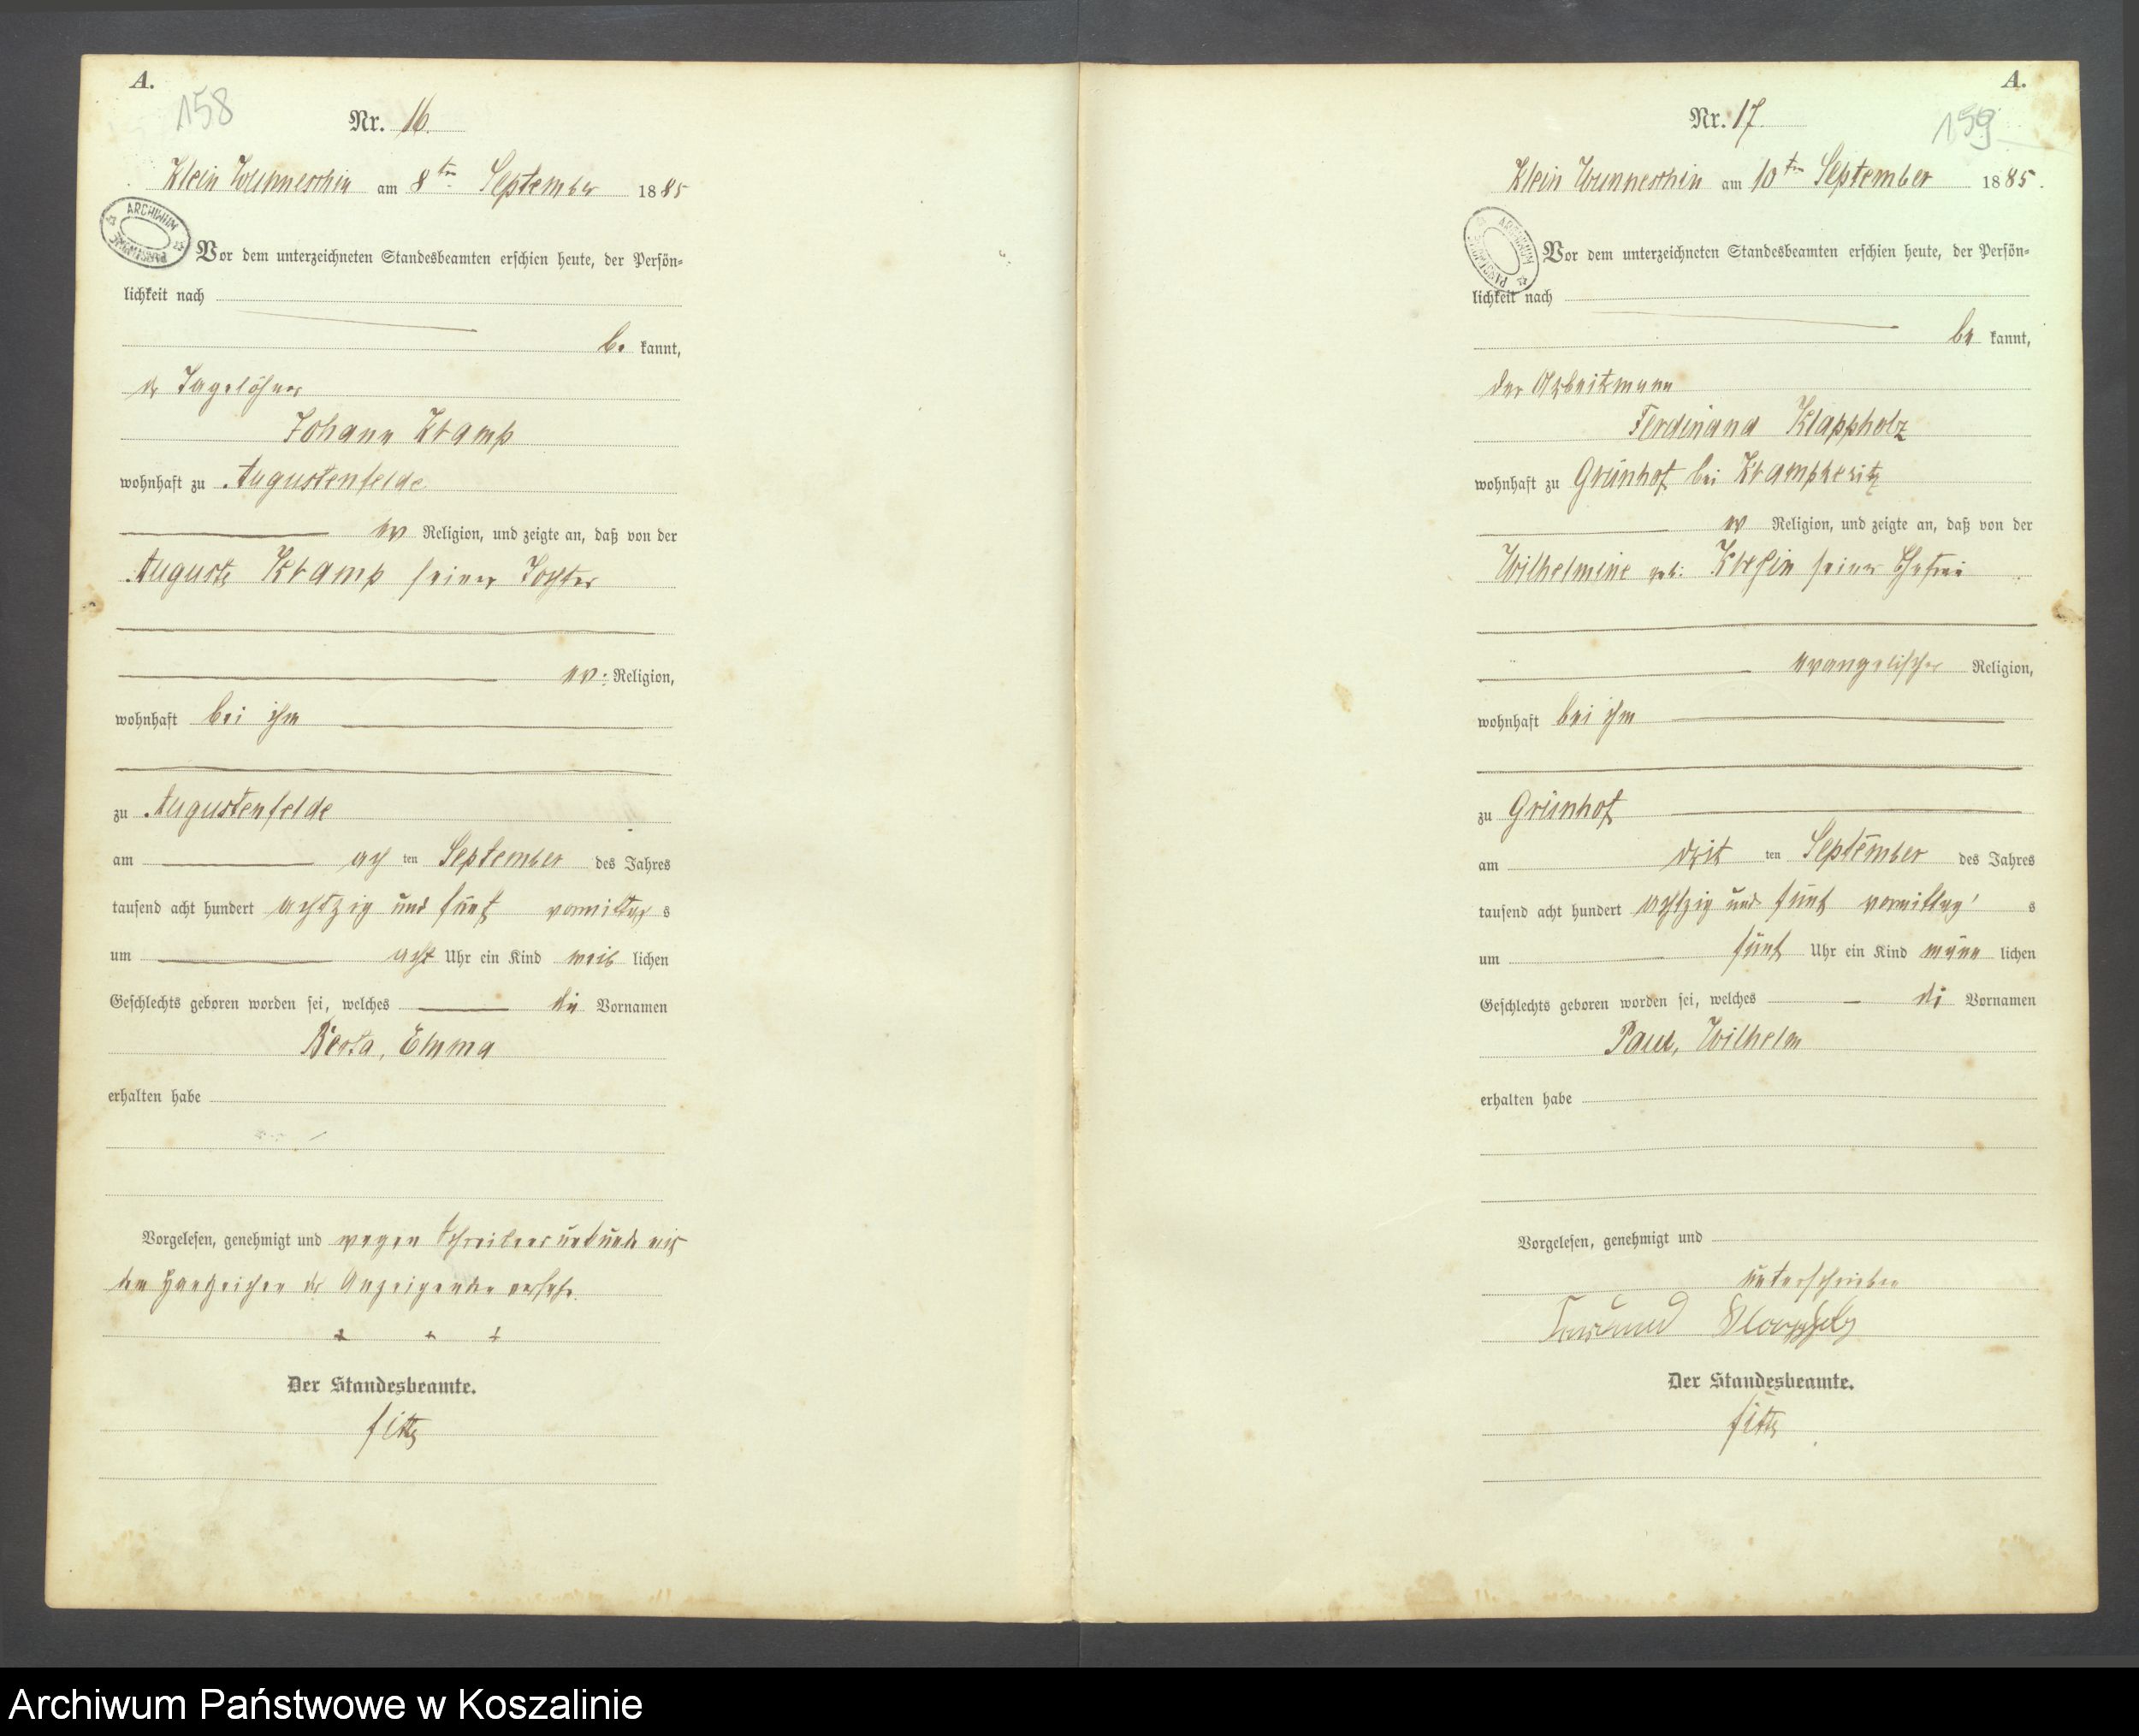 A.
158
Nr. 16.
Klein Wunneschin am 8ten September 1885
ARCHIWUM PAŃSTWOWE
Vor dem unterzeichneten Standesbeamten erschien heute, der Persön-
lichkeit nach
be kannt,
der Tagelöhner
Johann Kramp
wohnhaft zu Augustenfelde
ev Religion, und zeigte an, daß von der
Auguste Kramp seiner Tochter
ev. Religion,
wohnhaft bei ihm
zu Augustenfelde
am ach ten September des Jahres
tausend acht hundert achtzig und fünf vormittag s
um acht Uhr ein Kind weib lichen
Geschlechts geboren worden sei, welches die Vornamen
Berta, Emma
erhalten habe
Vorgelesen, genehmigt und wegen Schreibens
dem Handzeichen des Anzeigenden versehn.
+ + +
Der Standesbeamte.
A.
Nr. 17.
159
Klein Wunneschin am 10ten September 1885.
ARCHIWUM PAŃSTWOWE
Vor dem unterzeichneten Standesbeamten erschien heute, der Persön-
lichkeit nach
be kannt,
der Arbeitsmann
Ferdinand Klappholz
wohnhaft zu Grünhof bei Krampkewitz
ev Religion, und zeigte an, daß von der
Wilhelmine geb: Kreßin seiner Ehefrau
evangelischer Religion,
wohnhaft bei ihm
zu Grünhof
am drit ten September des Jahres
tausend acht hundert achtzig und fünf vormittag s
um fünf Uhr ein Kind männ lichen
Geschlechts geboren worden sei, welches die Vornamen
Paul, Wilhelm
erhalten habe
Vorgelesen, genehmigt und
unterschrieben
Klappholz
Der Standesbeamte.
Archiwum Państwowe w Koszalinie